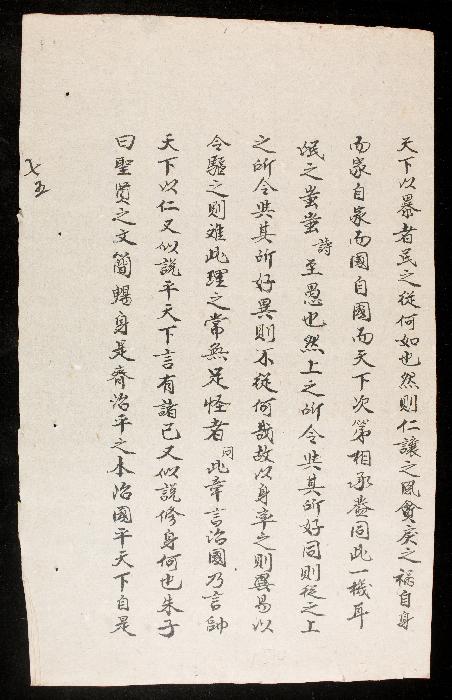 天下以暴者民之從何如也然則仁讓之風貪戾之禍自身
而家自家而國自國而天下次第相承盖同此一機耳
氓之蚩蚩詩至愚也然上之所令與其所好同則從之上
之所令與其所好異則不從何哉故以身率之則異易以
令驅之則難此理之常無足怪者同此章言治國乃言帥
天下以仁又似說平天下言有諸己又似說修身何也朱子
曰聖賢之文簡暢身是齊治平之本治國平天下自是
七五